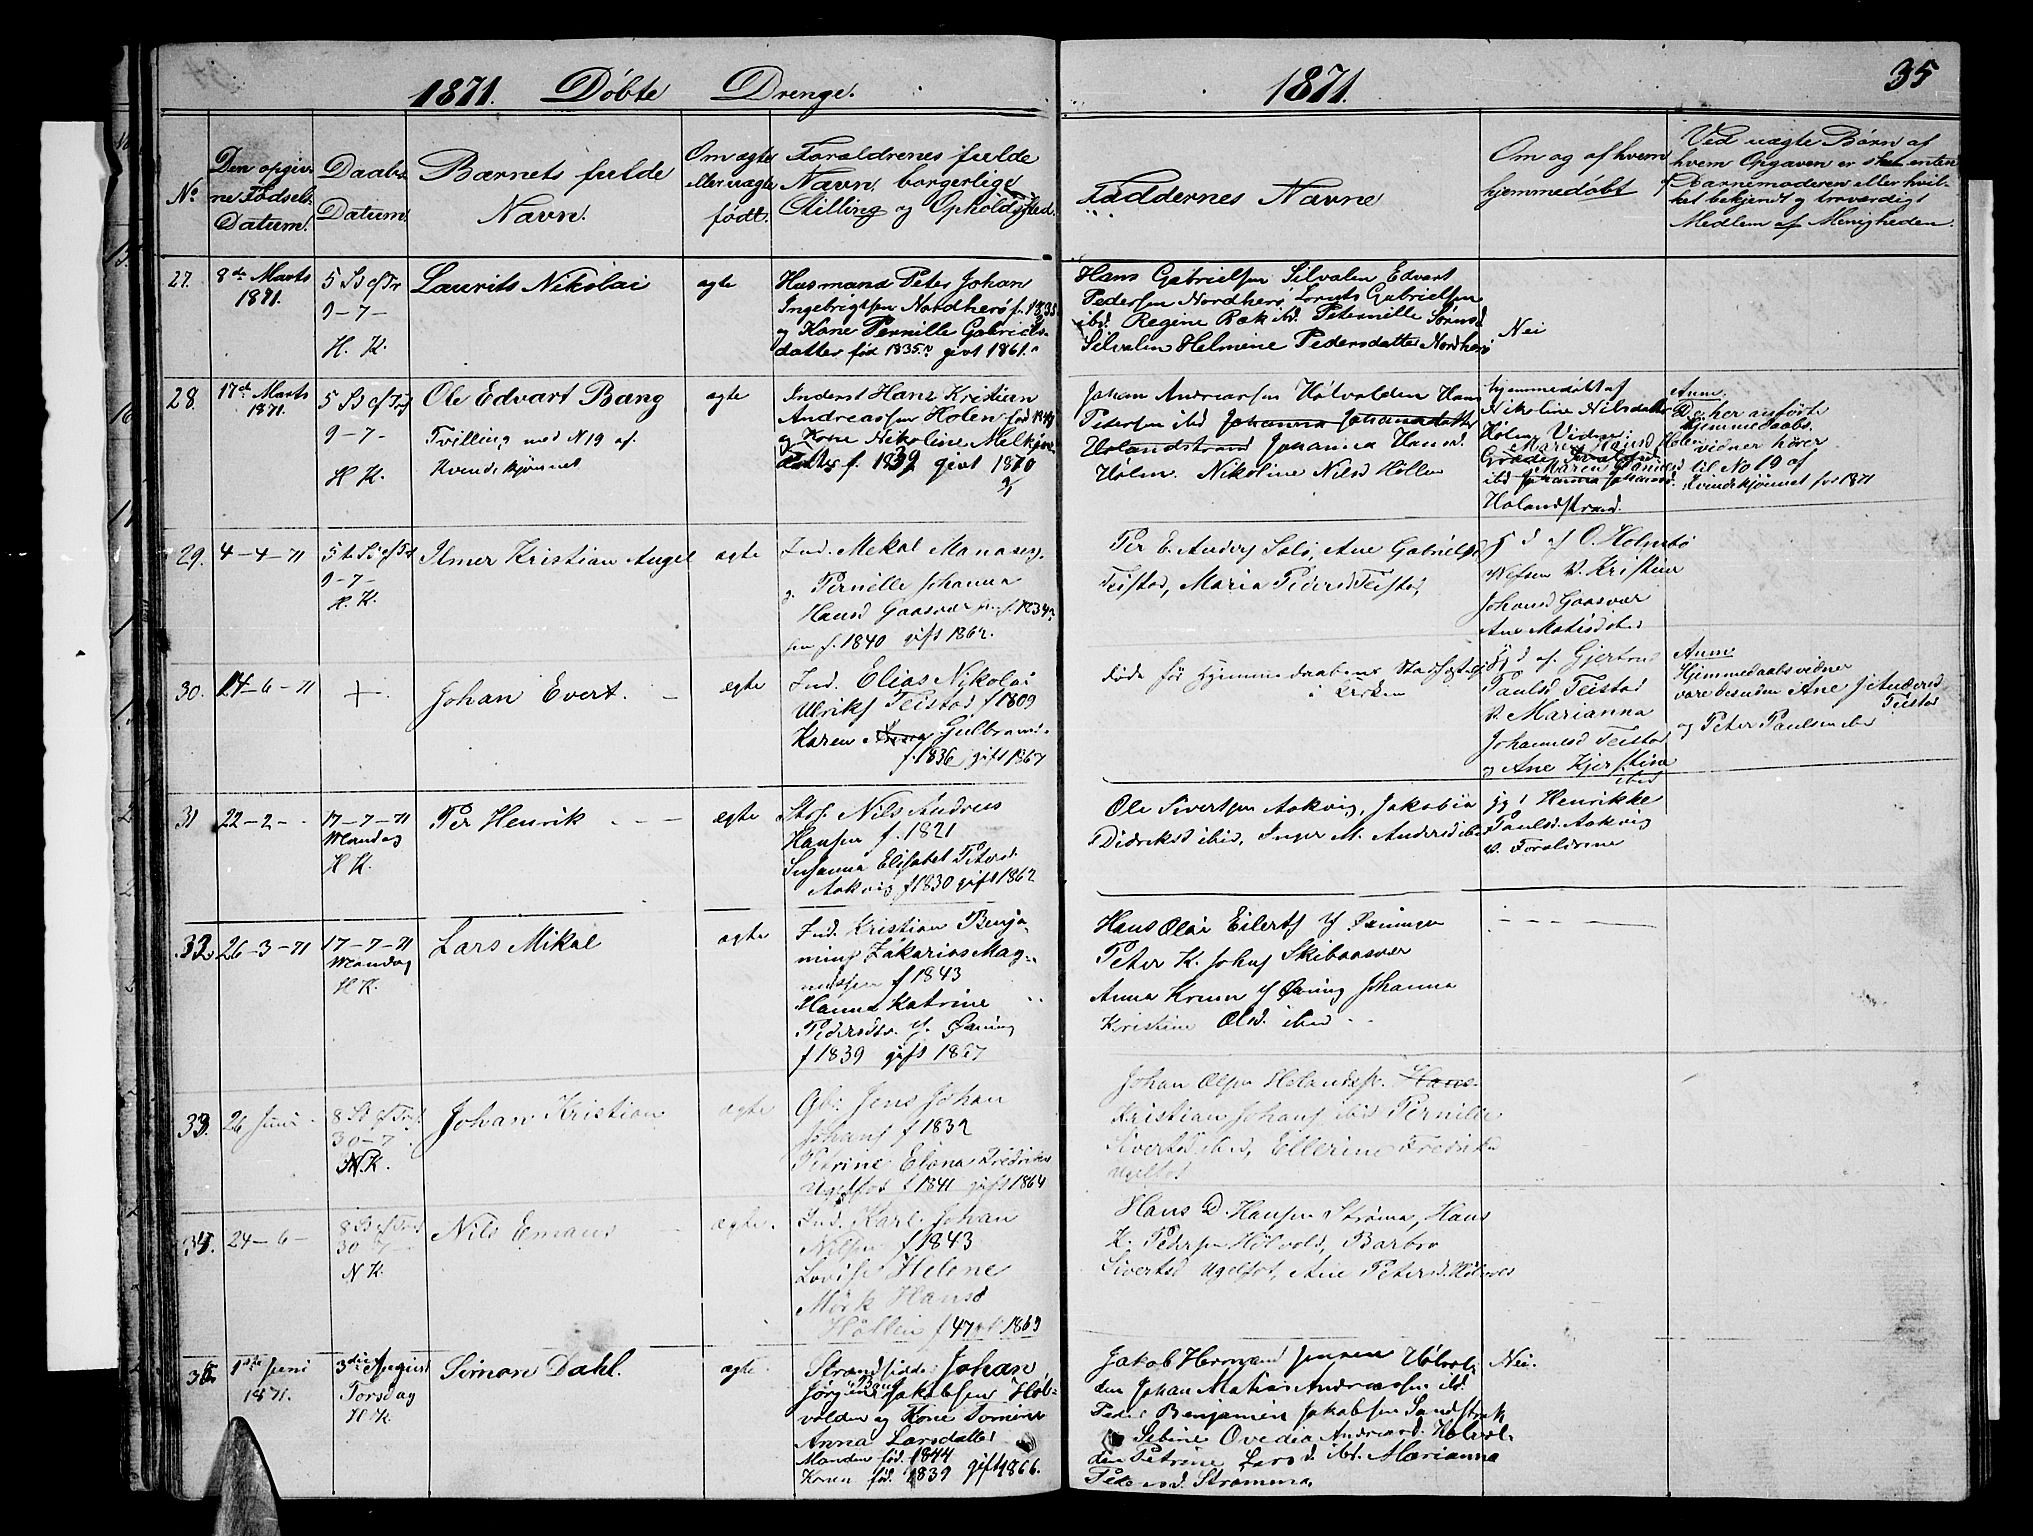 1871. Döbte Drenge.
1871.
35
No
Den opgiv-
ne Fødsels
Datum.
Daabs
Datum
Barnets fulde
Navn.
Om ægte
eller uægte
født.
Forældrenes fulde
Navn, borgerlige
Stilling og Opholdssted.
Faddernes Navne
Om og af hvem
hjemmedøbt
Ved uægte Børn af
hvem Opgaven er skeet enten
Barnemoderen eller hvil-
ket bekjendt og troværdigt
Medlem af Menigheden.
27.
8de Marts
1871.
5 S. ef Tr
9-7-
H. K.
Laurits Nikolai
ægte
Husmand Peter Johan
Ingebrigtsen Nordherø f. 1835
og Kone Pernille Gabriels-
datter fød 1835 givt 1861.
Hans Gabrielsen Silvalen Edvart
Pedersen Nordherø, Lorents Gabrielsen
ibd. Regine Bæk ibd. Peternille Sörensd
Silvalen Helmine Pedersdatter Nordherø
Nei
28.
17de Marts
1871.
5 S ef Trf
9-7-
H K.
Ole Edvart Bang
Tvilling med N 19 af
Kvindekjønnet
ægte
Inderst Hans Kristian
Andreassen Holen fød 1849
og Kone Nikoline Melkior
datter f. 1839 givt 1870
Johan Andreassen Hölvolden Hans
Petersen ibd Johanna Johansdatter
Holandstrand Johanna Hansd.
Hølen. Nikoline Nilsd Höllen
hjemmedøbt af
Nikoline Nilsdatter
Hølen Vidner:
Maren Hansd Holen
ibd Johanna Johansd.
Holandstrand.
Anm.
De her anførte
hjemmedaabs-
vidner hører
til No 19 af
Kvindekjønnet for 1871
29.
4-4-71
5te S ef Tr
9-7-
H. K.
Ilmer Kristian Angel
ægte
Ind. Mekal Manases.
g. Pernille Johanna
Hansd Gaasvær f. 1834
f. 1840 gift 1862.
Per E. Anders Solø, Ane Gabrielsd
Teistad, Maria Pedersd Teistad
jd af O. Holmbø
Nefsen V. Kristine
Johansd Gaasvær
Ane Matisd ibd
30.
14-6-71
+
Johan Evert.
ægte
Ind. Elias Nikolai
Ulriks Teistad f 1809
Karen Gulbrans.
f. 1836 gift 1867
døde før Hjemmedaabens Stadfæstelse
i Kirken
jd af. Gjertru
Paulsd Teistad
V. Marianna
Johannesd Teistad
og Ane Kjerstina
ibid
Anm
Hjemmedaabsvidner
vare desuden Ane J Andersd
Teistad
og Peter Paulsen ibd
31
22-2-
17-7-71
Mandag
H K.
Per Henrik
ægte
Nils Andreas
Hansen f. 1821
Susanna Elisabet Petersd
Aakvig f 1830 gift 1862
Ole Sivertsen Aakvig, Jakobia
Didriksd ibid, Inger M. Andersd ibd
jd Henrikke
Paulsd. Aakvig
V. Forældrene
32
26-3-71
17-7-71
Mandag
H K.
Lars Mikal
ægte
Ind. Kristian Benja-
mins Zakarias Mag-
nussen f 1843
Hanna Katrine
Pedersdtr. Y. Øxning
f 1839 gift 1867
Hans Olai Eilerts Y Øxningen
Peter K. Johns Skibaasvær
Anna Y Øxning Johanna
Kristine Olsd. ibid
33.
26 Juni
8 S ef Tref
30-7
N. K.
Johan Kristian
ægte
Gbr. Jens Johan
Johans f 1832
Petrine Elena Fredriksd
Ugelfot f 1841 gift 1864
Johan Olsen Holandsstr. Hans
Kristian Johans ibid Pernille
Sivertsd ibid, Ellerine Fredriksd
Ugelfot
34.
24-6-
8 S ef Tref
30-7-
N K.
Nils Emaus
ægte.
Ind. Karl Johan
Nilsen f 1843
Lovise Helene
Mörk Hansd
Höllen f 47 gt 1869
Hans D. Hansen Strøma, Hans
K. Pedersen Hölvold, Barbro
Sivertsd Ugelfot, Ane Petersd. Hölvold
35
1ste Juni
1871.
3die August
Torsdag
H. K.
Simon Dahl.
ægte
Strandsidder Johan
Jørgen Bang Jakobsen Høl-
volden og Kone Tomine
Anna Larsdatter
Manden fød. 1844
Konen fød. 1839 gift 1866.
Jakob Hermand Jensen Hölvol-
den Johan Matias Andreassen ibd.
Peder Benjamin Jakobsen Sandstrak
Sibine Ovedia Andreasd. Holvol-
den Petrine Larsd. ibd. Marianna
Pedersd. Strømma.
Nei.